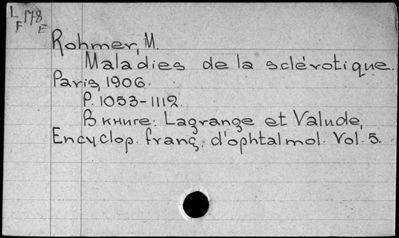 L 178
F E
Rohmer, M.
Maladies de la sclérotique.
Paris, 1906.
P. 1053-1112.
В книге: Lagrange et Valude,
Encyclop. franç. d'ophtalmol. Vol. 5.